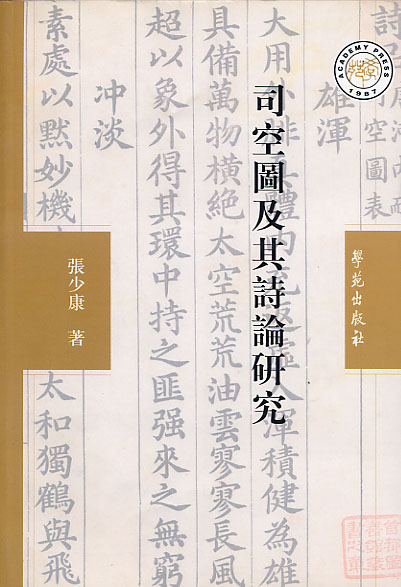 ACADEMY PRESS
1987
學苑出版社
司空圖及其詩論研究
張少康 著
詩
空圖表
雄渾
大用外 體內 入渾積健為雄
具備萬物橫絶太空荒荒油雲寥寥長風
超以象外得其環中持之匪强來之無窮
冲淡
素處以默妙機 太和獨鶴與飛